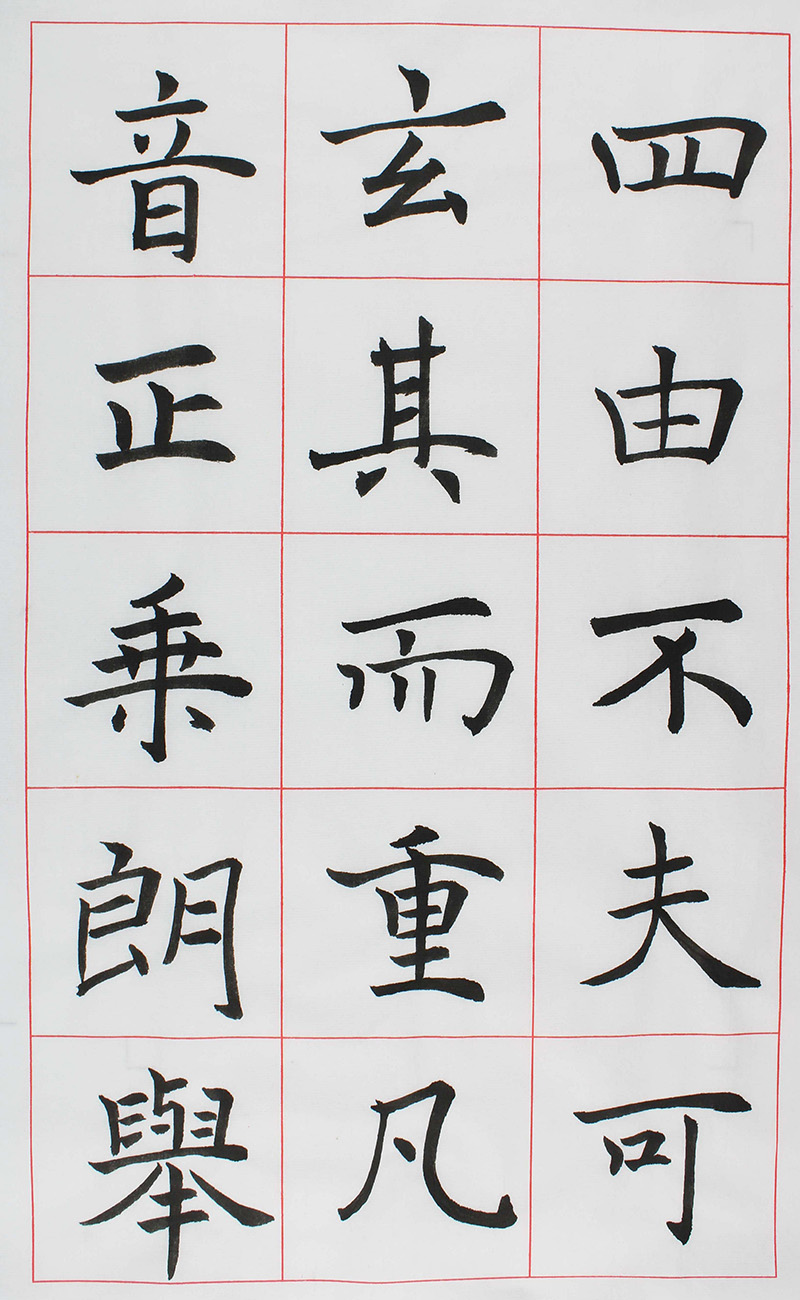 四由不夫可
玄其而重凡
音正乗朗舉